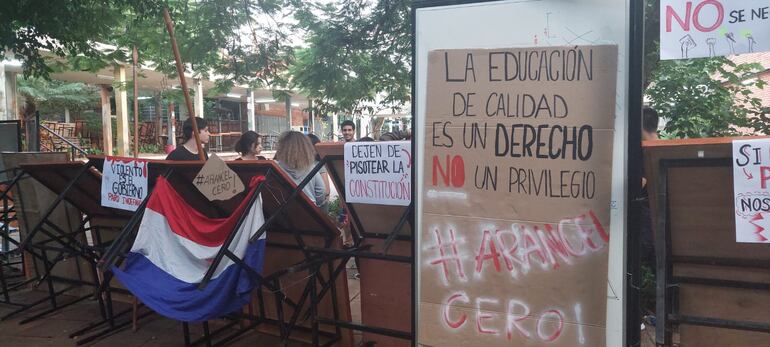 VIOLENTO
ES EL
GOBIERNO
#ARANCEL
CERO!
DEJEN DE
PISOTEAR LA
CONSTITUCIÓN
LA EDUCACIÓN
DE CALIDAD
ES UN DERECHO
NO UN PRIVILEGIO
#ARANCEL
CERO!
NO SE NE
SI
NOS